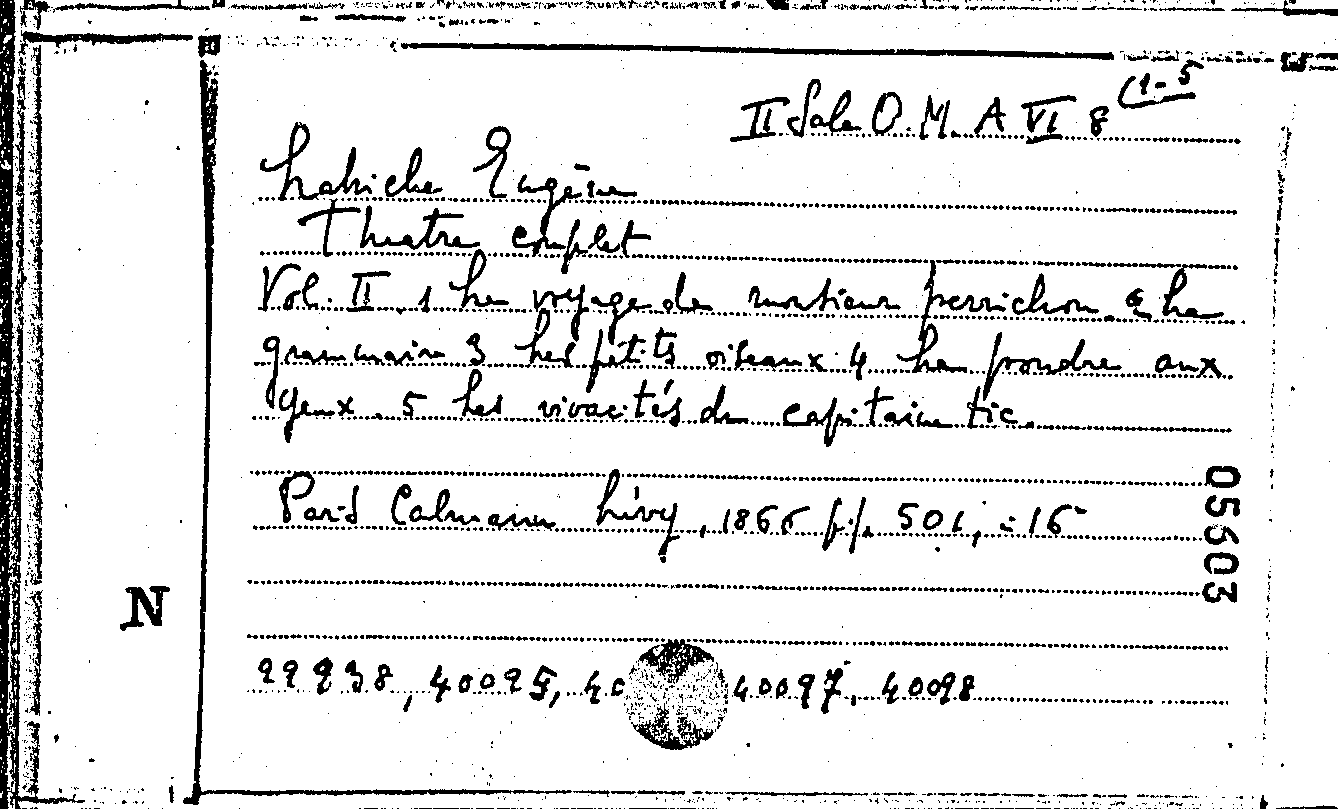 II Sala O. M. A VI 8 (1-5
Labiche Eugène
Theatre complet
Vol. II. 1 Le voyage de monsieur perrichon. 2 La
grammaire 3 Les petits oiseaux 4 La poudre aux
yeux. 5 Les vivacités du capitaine tic.
Paris Calmann Lévy, 1866 pp. 501, in 16º
05603
N
22238, 40095, 40 40097, 40098